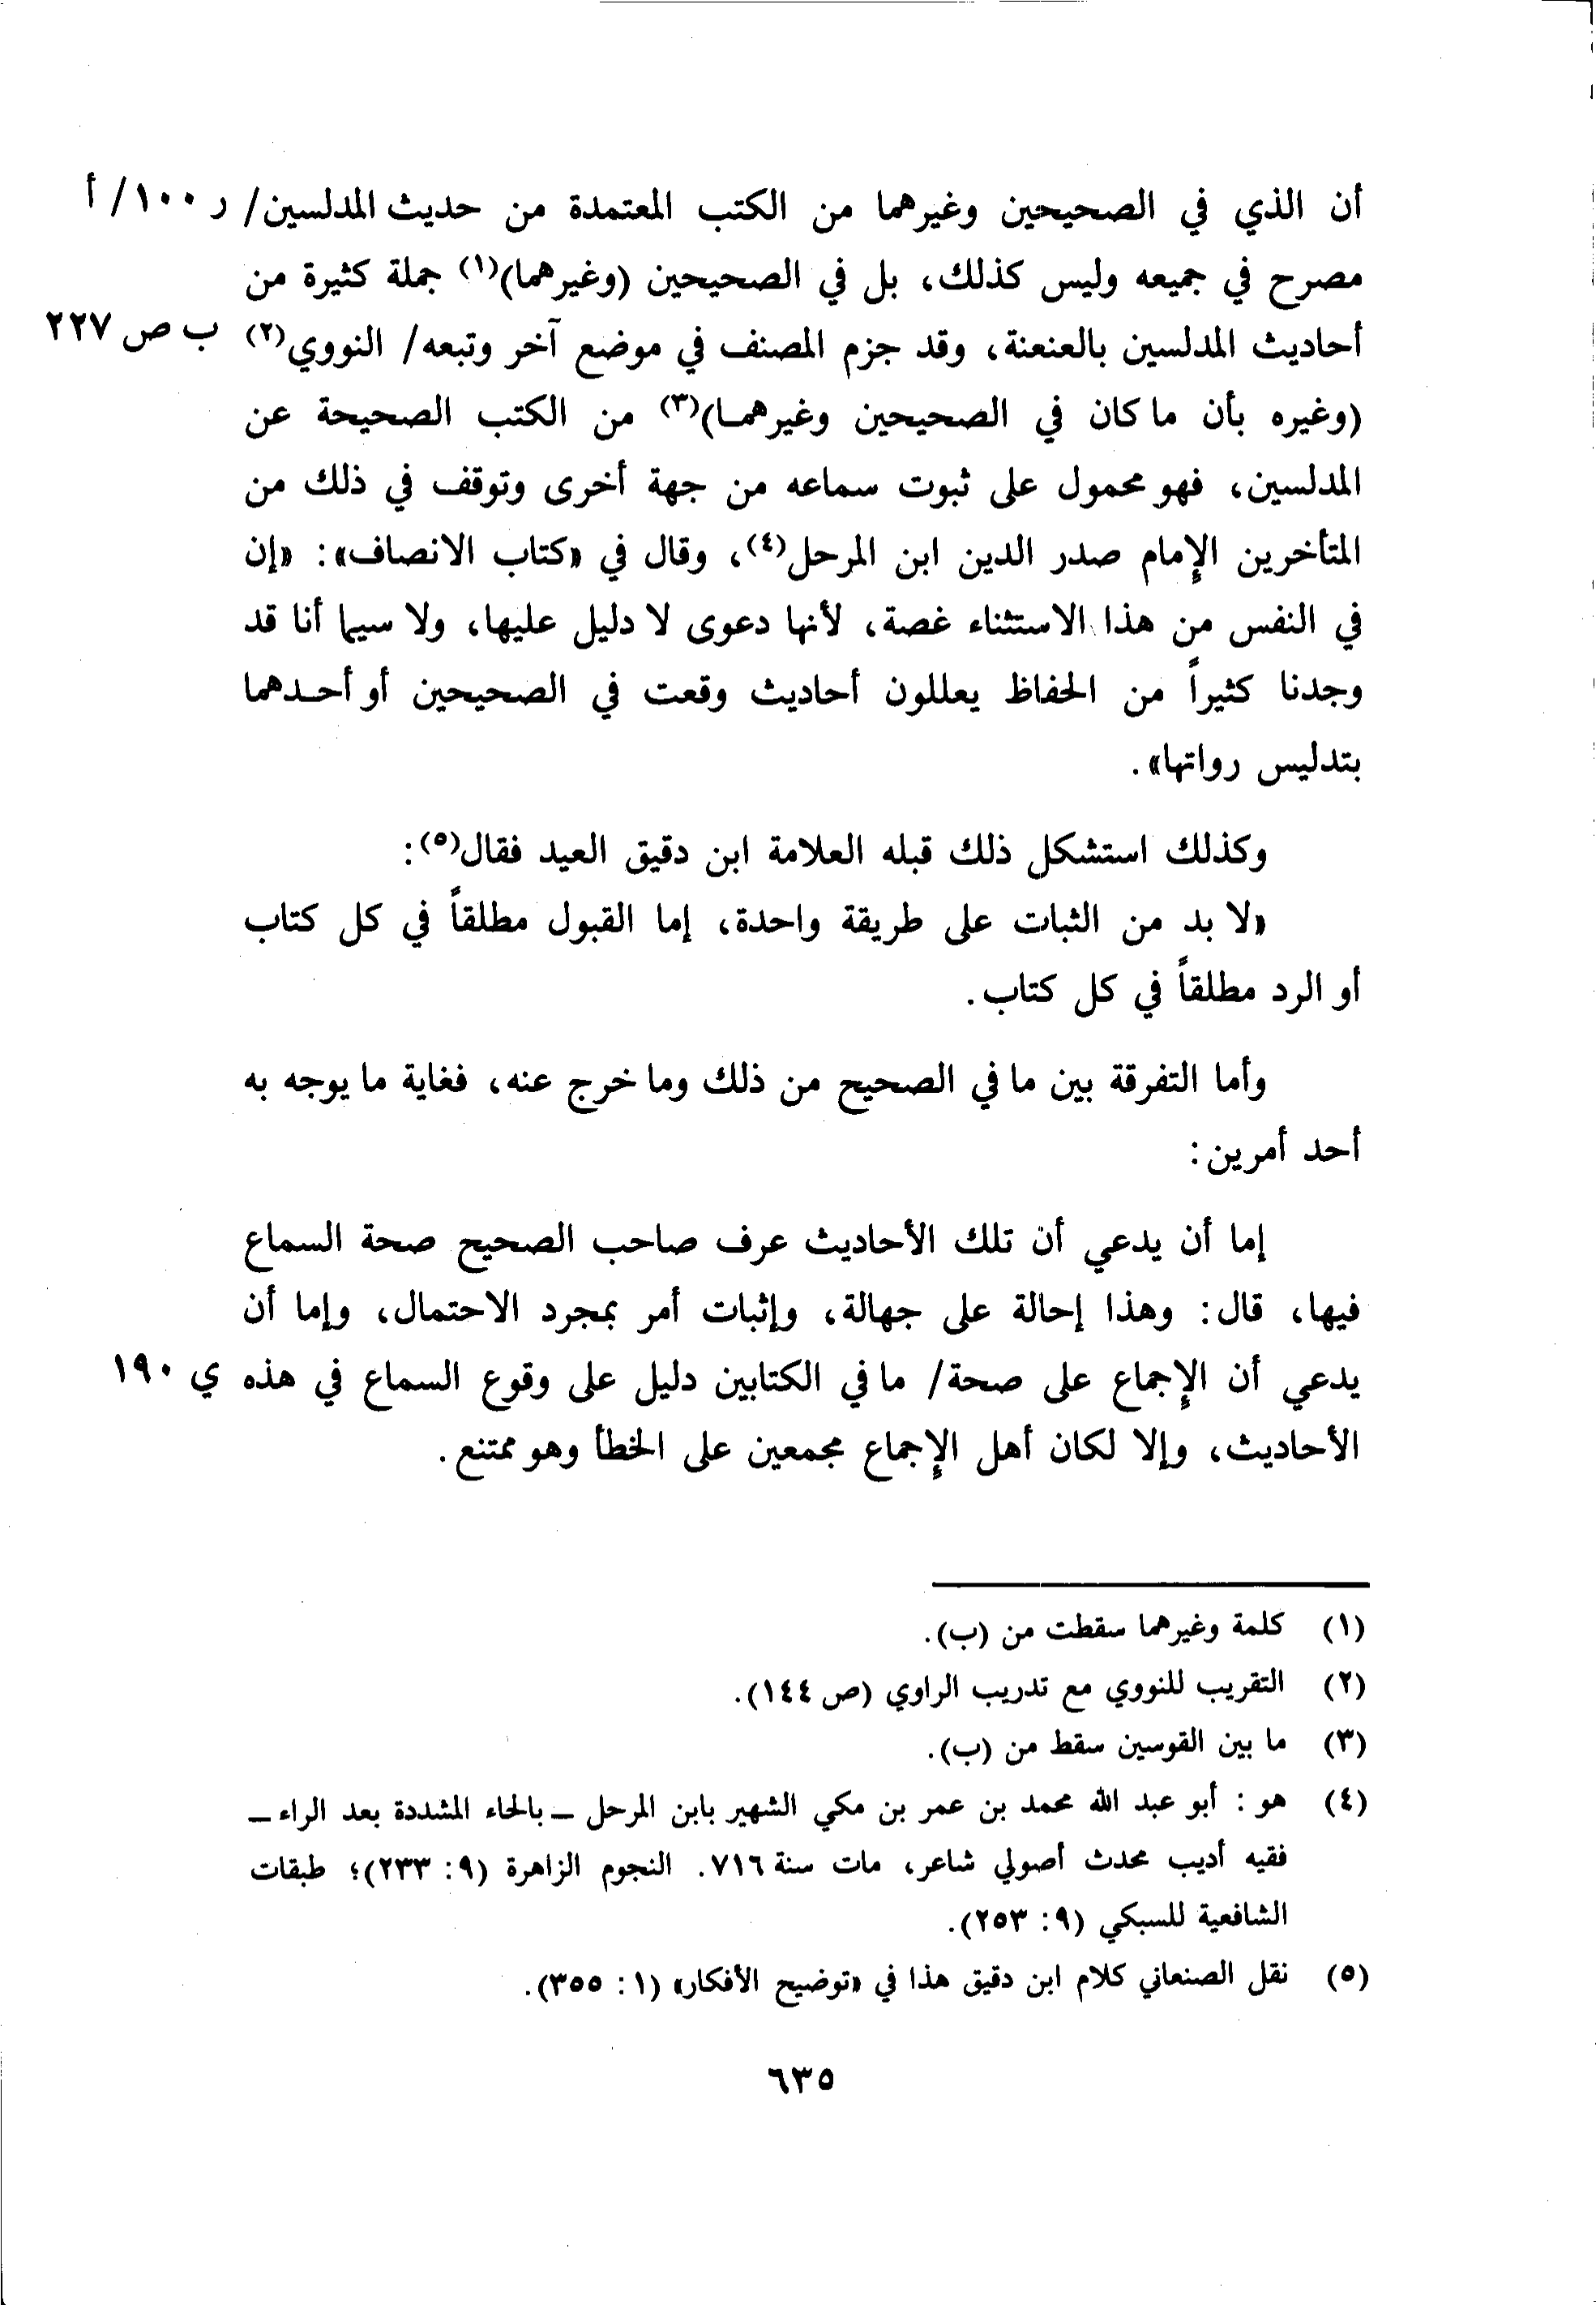 أن الذي في الصحيحين وغيرهما من الكتب المعتمدة من حديث المدلسين/ ر ١٠٠/ أ
مصرح في جميعه وليس كذلك، بل في الصحيحين (وغيرهما)(١) جملة كثيرة من
أحاديث المدلسين بالعنعنة، وقد جزم المصنف في موضع آخر وتبعه/ النووي(٢) ب ص ٢٢٧
(وغيره بأن ما كان في الصحيحين وغيرهمـا)(٣) من الكتب الصحيحة عن
المدلسين، فهو محمول على ثبوت سماعه من جهة أخرى وتوقف في ذلك من
المتأخرين الإمام صدر الدين ابن المرحل(٤)، وقال في «كتاب الانصاف»: «إن
في النفس من هذا الاستثناء غصة، لأنها دعوى لا دليل عليها، ولا سيما أنا قد
وجدنا كثيراً من الحفاظ يعللون أحاديث وقعت في الصحيحين أو أحـدهما
بتدليس رواتها».
وكذلك استشكل ذلك قبله العلامة ابن دقيق العيد فقال(٥):
«لا بد من الثبات على طريقة واحدة، إما القبول مطلقاً في كل كتاب
أو الرد مطلقاً في كل كتاب.
وأما التفرقة بين ما في الصحيح من ذلك وما خرج عنه، فغاية ما يوجه به
أحد أمرين:
إما أن يدعي أن تلك الأحاديث عرف صاحب الصحيح صحة السماع
فيها، قال: وهذا إحالة على جهالة، وإثبات أمر بمجرد الاحتمال، وإما أن
يدعي أن الإجماع على صحة/ ما في الكتابين دليل على وقوع السماع في هذه ي ١٩٠
الأحاديث، وإلا لكان أهل الإجماع مجمعين على الخطأ وهو ممتنع.
(١) كلمة وغيرهما سقطت من (ب).
(٢) التقريب للنووي مع تدريب الراوي (ص ١٤٤).
(٣) ما بين القوسين سقط من (ب).
(٤) هو : أبو عبد الله محمد بن عمر بن مكي الشهير بابن المرحل ــ بالحاء المشددة بعد الراء ــ
فقيه أديب محدث أصولي شاعر، مات سنة ٧١٦. النجوم الزاهرة (٩: ٢٣٣)؛ طبقات
الشافعية للسبكي (٩: ٢٥٣).
(٥) نقل الصنعاني كلام ابن دقيق هذا في «توضيح الأفكار» (١: ٣٥٥).
٦٣٥